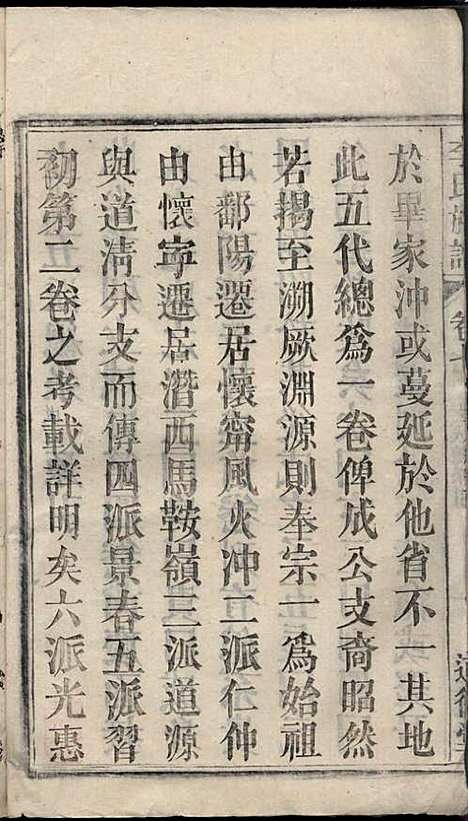 李氏族譜
卷
於畢家沖或蔓延於他省不一其地
此五代總爲一卷俾成公支裔昭然
若揭至溯厥淵源則奉宗一爲始祖
由鄱陽遷居懷甯風火沖二派仁仲
由懷寧遷居潛西馬鞍嶺三派道源
與道清分支而傳四派景春五派習
初第二卷之考載詳明矣六派光惠